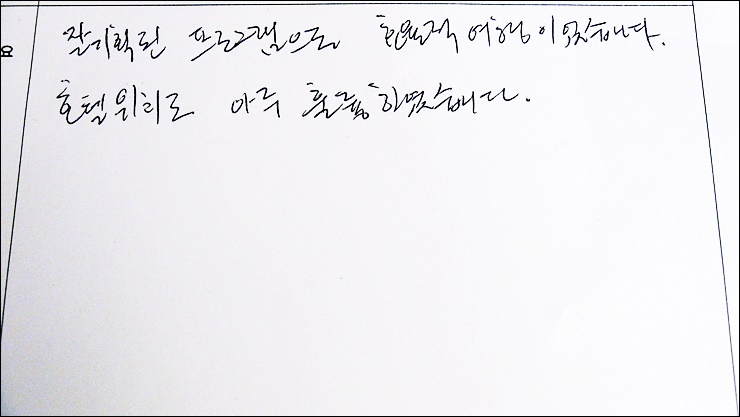 잘 기획된 프로그램으로 효율적 여행이였습니다.
호텔위치도 아주 훌륭하였습니다.